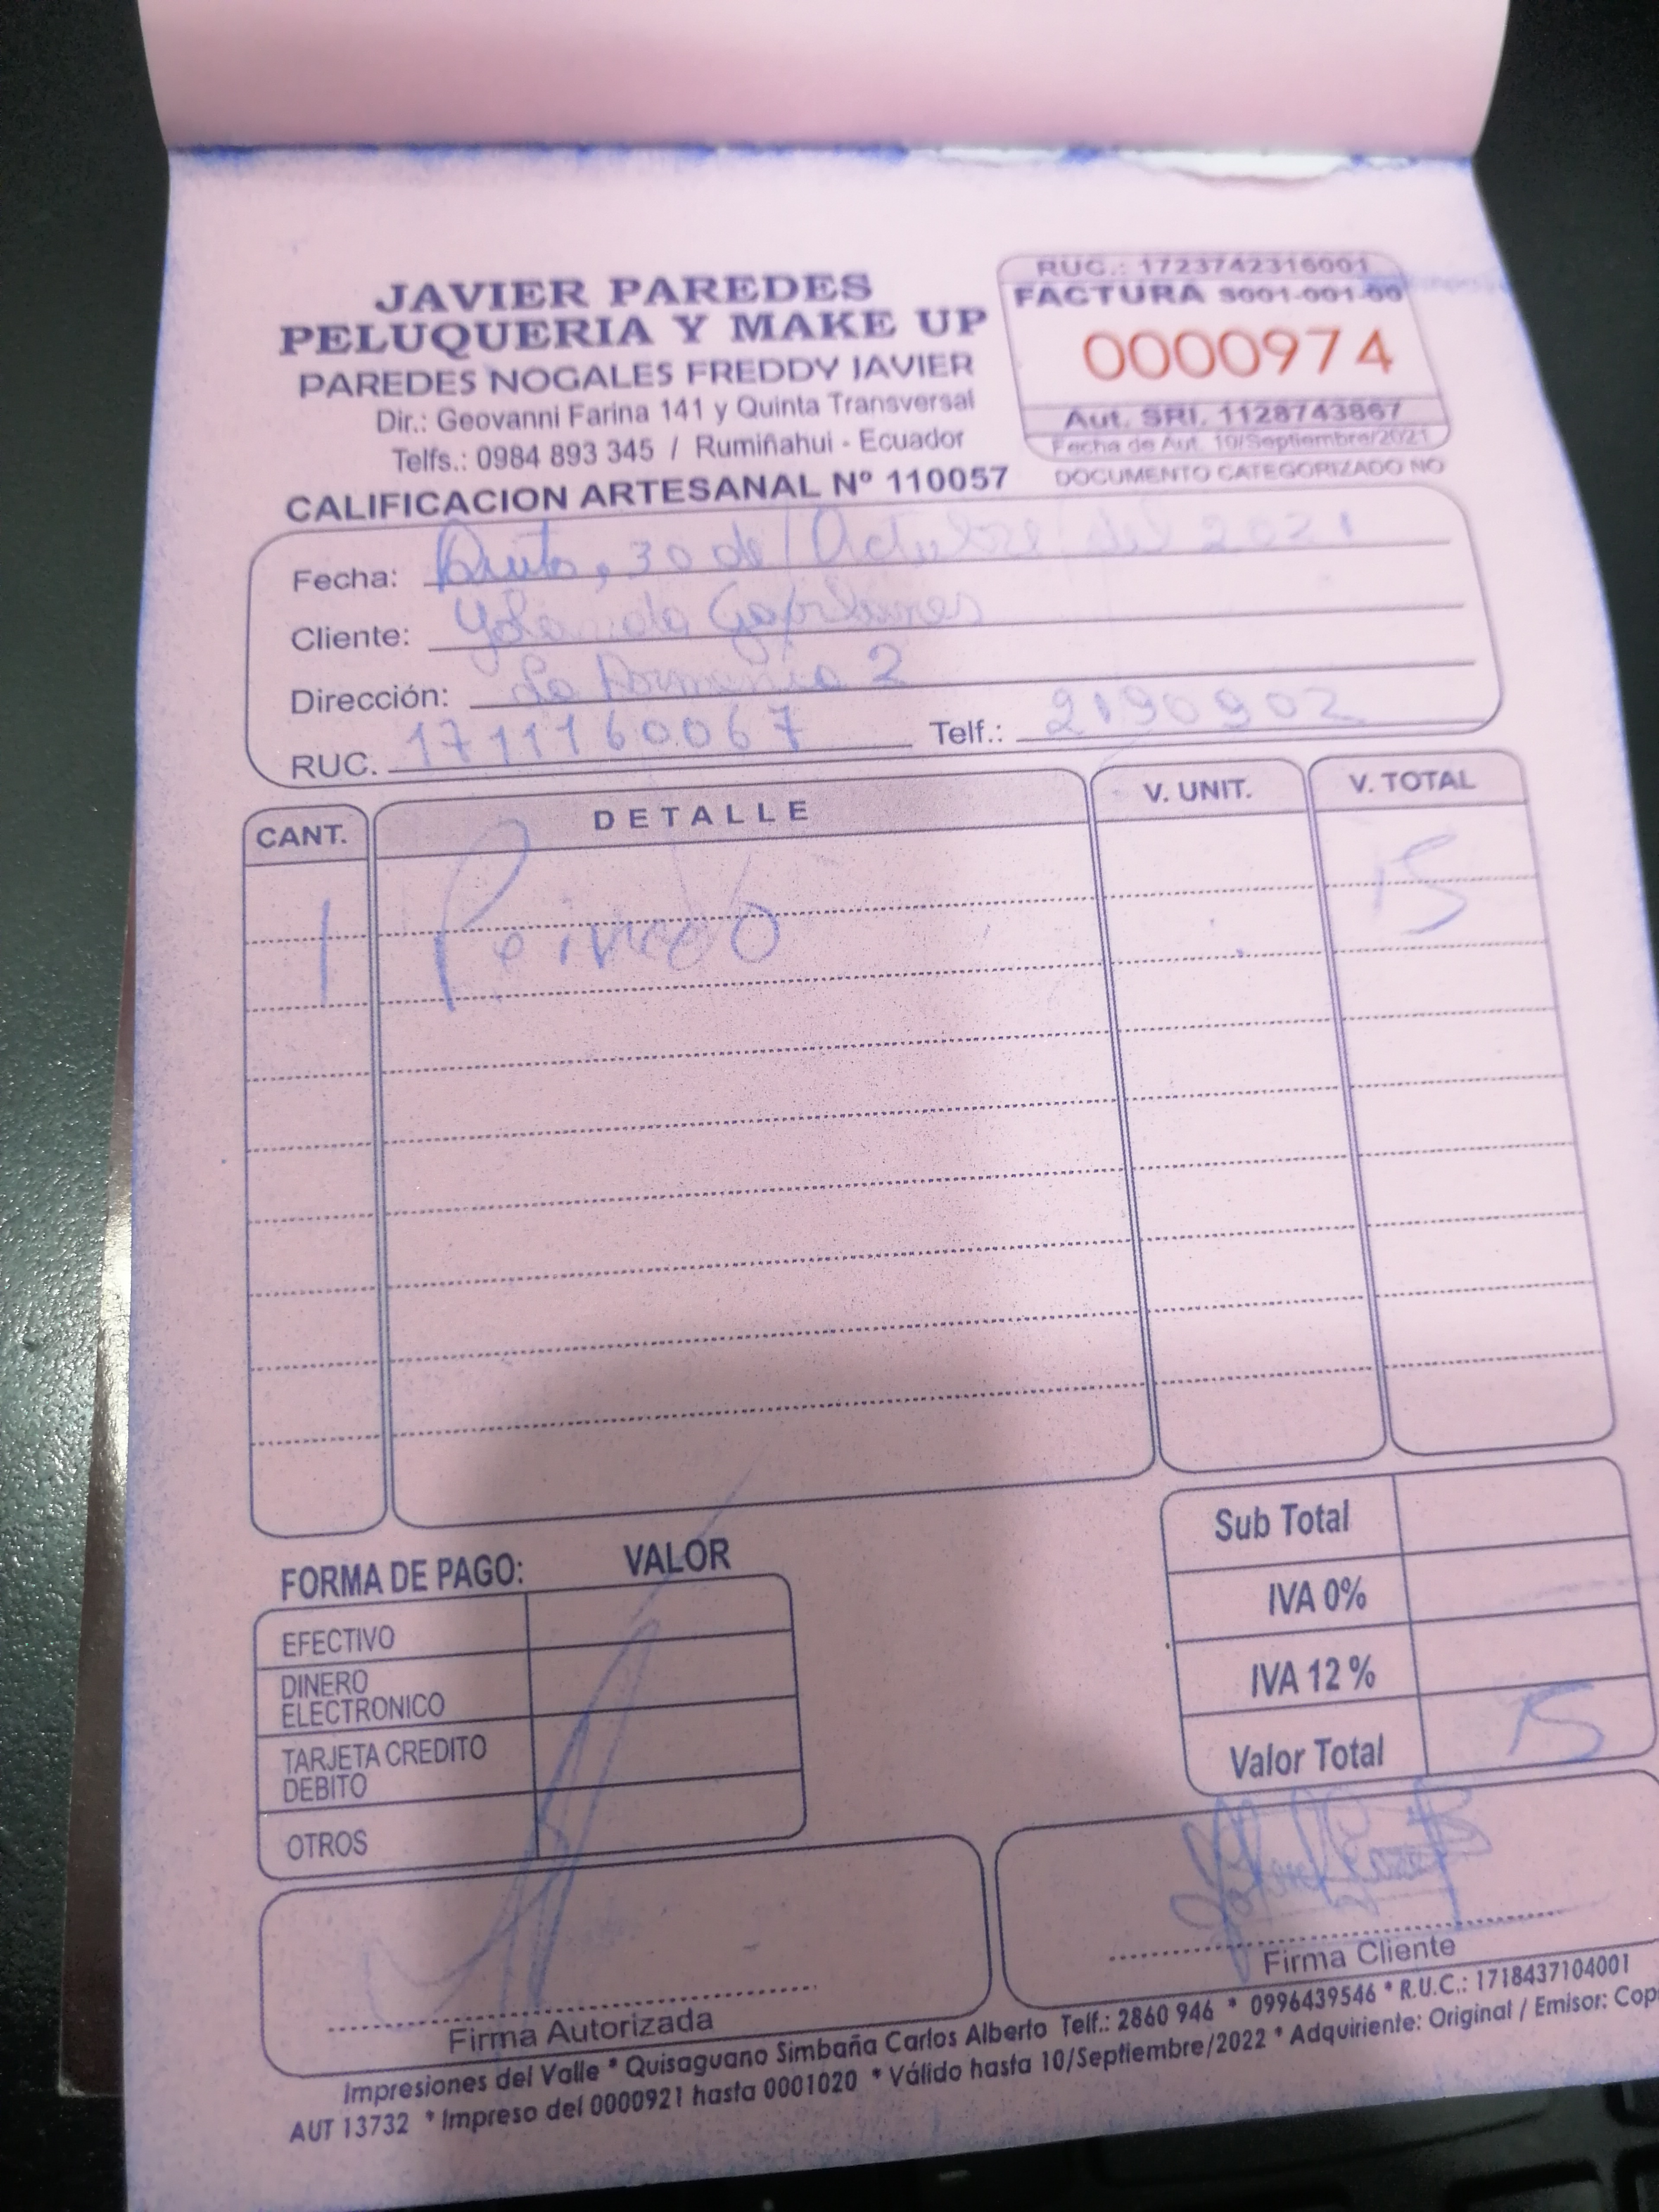 JAVIER PAREDES
PELUQUERIA Y MAKE UP
PAREDES NOGALES FREDDY JAVIER
Dir.: Geovanni Farina 141 y Quinta Transversal
Telfs.: 0984 893 345 / Rumiñahui - Ecuador
CALIFICACION ARTESANAL Nº 110057
RUC.: 1723742316001
FACTURA S001-001-00
0000974
Aut. SRI. 1128743867
Fecha de Aut. 10/Septiembre/2021
DOCUMENTO CATEGORIZADO NO
Fecha: Quito, 30 de Octubre del 2021
Cliente: Yolanda
Dirección: La Armenia 2
RUC. 1711160067 Telf.: 2190902
CANT. DETALLE V. UNIT. V. TOTAL
1 Peinado 15
Sub Total
IVA 0%
IVA 12%
Valor Total 15
FORMA DE PAGO: VALOR
EFECTIVO
DINERO
ELECTRONICO
TARJETA CREDITO
DEBITO
OTROS
Firma Autorizada
Firma Cliente
Impresiones del Valle * Quisaguano Simbaña Carlos Alberto Telf.: 2860 946 * 0996439546 * R.U.C.: 1718437104001
AUT 13732 * Impreso del 0000921 hasta 0001020 * Válido hasta 10/Septiembre/2022 * Adquiriente: Original / Emisor: Cop